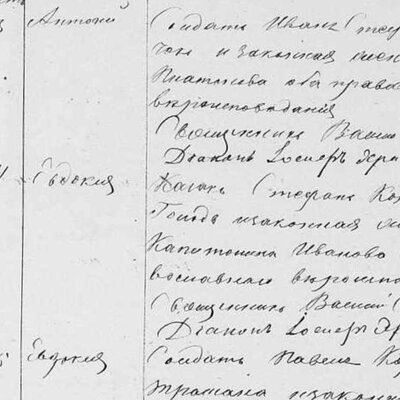 Антоній
Солдатъ Иванъ Стеф
чом и законная жен
Платонова оба правос
вероисповедания
Священникъ Васил
Діаконъ Іосифъ Хра
Евдокия
Казакъ Стефанъ Ко
законная
Капитолина Иваново
вославнаго вероиспо
Священникъ Васил
Діаконъ Іосифъ Хр
Евдокия
Солдатъ Павелъ К
законн